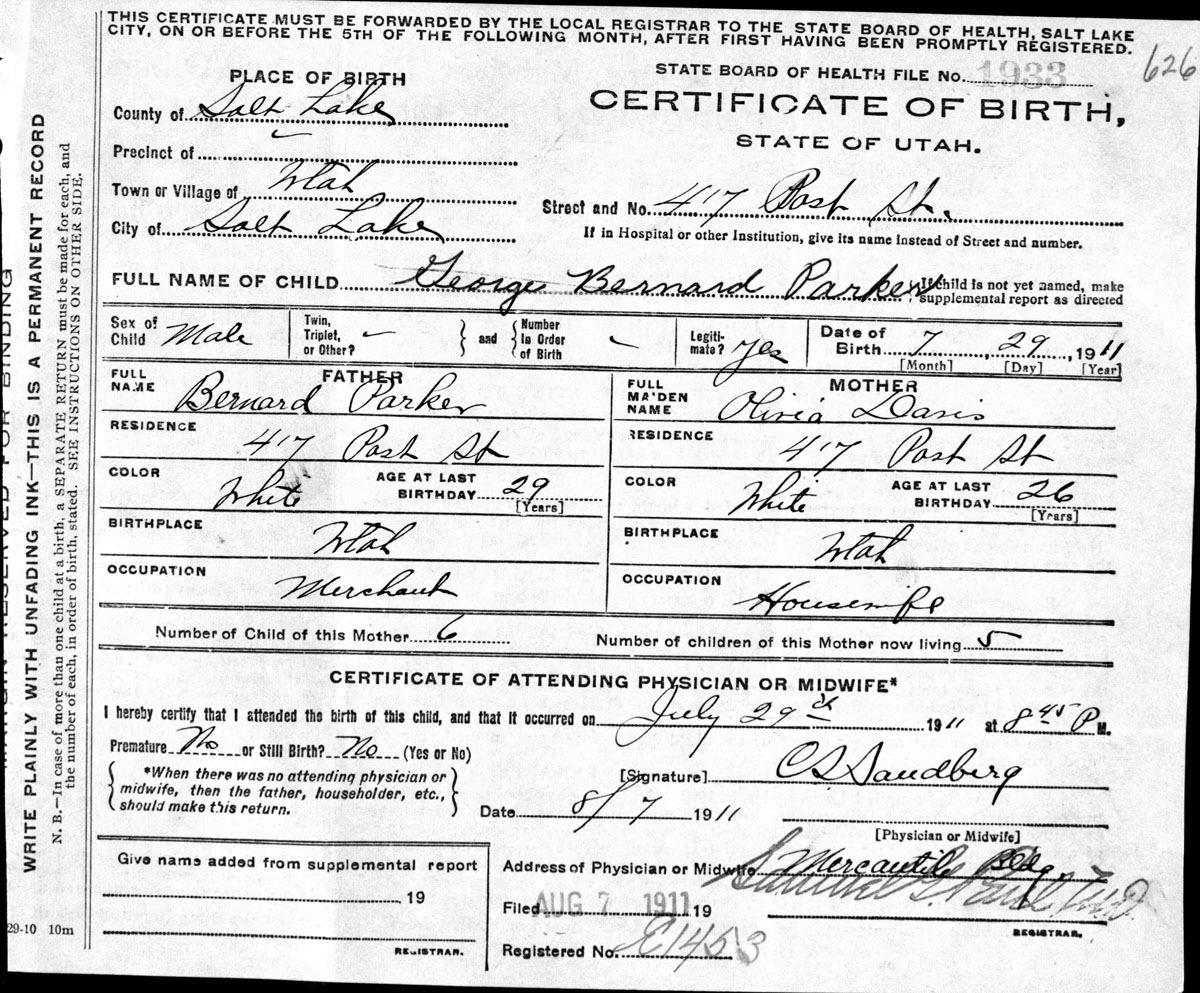 THIS CERTIFICATE MUST BE FORWARDED BY THE LOCAL REGISTRAR TO THE STATE BOARD OF HEALTH, SALT LAKE
CITY, ON OR BEFORE THE 5TH OF THE FOLLOWING MONTH, AFTER FIRST HAVING BEEN PROMPTLY REGISTERED.
626
PLACE OF BIRTH
STATE BOARD OF HEALTH FILE No. 1933
CERTIFICATE OF BIRTH,
STATE OF UTAH.
County of Salt Lake
Precinct of —
Town or Village of Utah
City of Salt Lake
Street and No. 417 Post St.
If in Hospital or other Institution, give its name instead of Street and number.
FULL NAME OF CHILD George Bernard Parker
If child is not yet named, make
supplemental report as directed
Sex of Child Male
Twin, Triplet, or Other? —
and Number In Order of Birth —
Legiti-mate? yes
Date of Birth 7, 29, 1911
[Month] [Day] [Year]
FATHER
FULL NAME Bernard Parker
RESIDENCE 417 Post St
COLOR White AGE AT LAST BIRTHDAY 29
[Years]
BIRTHPLACE Utah
OCCUPATION Merchant
MOTHER
FULL MAIDEN NAME Olivia Davis
RESIDENCE 417 Post St
COLOR White AGE AT LAST BIRTHDAY 26
[Years]
BIRTHPLACE Utah
OCCUPATION Housewife
Number of Child of this Mother 6 Number of children of this Mother now living 5
CERTIFICATE OF ATTENDING PHYSICIAN OR MIDWIFE*
I hereby certify that I attended the birth of this child, and that it occurred on July 29th 1911 at 8 45 P M.
Premature No or Still Birth? No (Yes or No)
*When there was no attending physician or
midwife, then the father, householder, etc.,
should make this return.
[Signature] C S Sandberg
Date 8/7 1911
[Physician or Midwife]
Give name added from supplemental report
19
REGISTRAR.
Address of Physician or Midwife Mercantile Bldg.
Filed AUG 7 1911 19
REGISTRAR.
Registered No. E1453
MARGIN RESERVED FOR BINDING
WRITE PLAINLY WITH UNFADING INK—THIS IS A PERMANENT RECORD
N. B.—In case of more than one child at a birth, a SEPARATE RETURN must be made for each, and
the number of each, in order of birth, stated. SEE INSTRUCTIONS ON OTHER SIDE.
29-10 10m